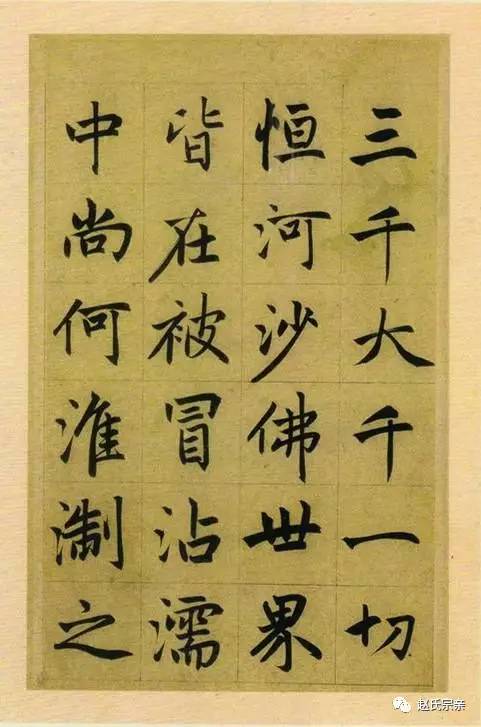 三千大千一切
恒河沙佛世界
皆在被冒沾濡
中尚何淮淛之
赵氏宗亲